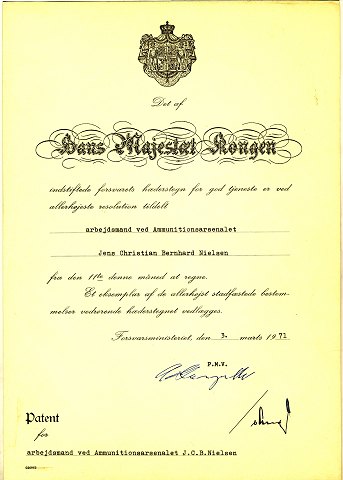 Det af
Hans Majestæt Kongen
indstiftede forsvarets hæderstegn for god tjeneste er ved
allerhøjeste resolution tildelt
arbejdsmand ved Ammunitionsarsenalet
Jens Christian Bernhard Nielsen
fra den 11te denne måned at regne.
Et eksemplar af de allerhøjst stadfæstede bestem-
melser vedrørende hæderstegnet vedlægges.
Forsvarsministeriet, den 3. marts 1971
P.M.V.
Patent
for
arbejdsmand ved Ammunitionsarsenalet J.C.B.Nielsen